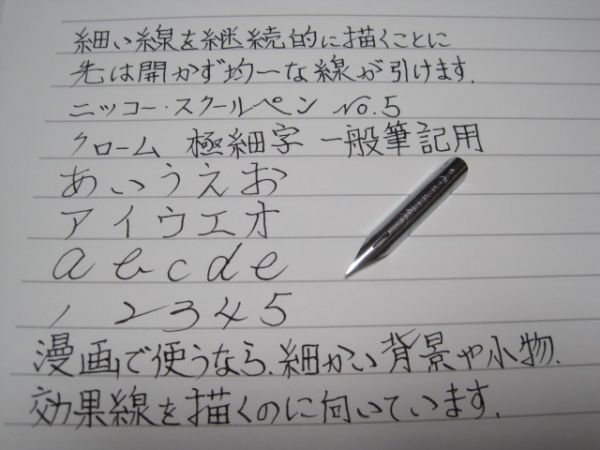 細い線を継続的に描くことに
先は開かず均一な線が引けます.
ニッコー・スクールペン No.5
クローム 極細字 一般筆記用
あいうえお
アイウエオ
a b c d e
1 2 3 4 5
漫画で使うなら、細かい背景や小物、
効果線を描くのに向いています.